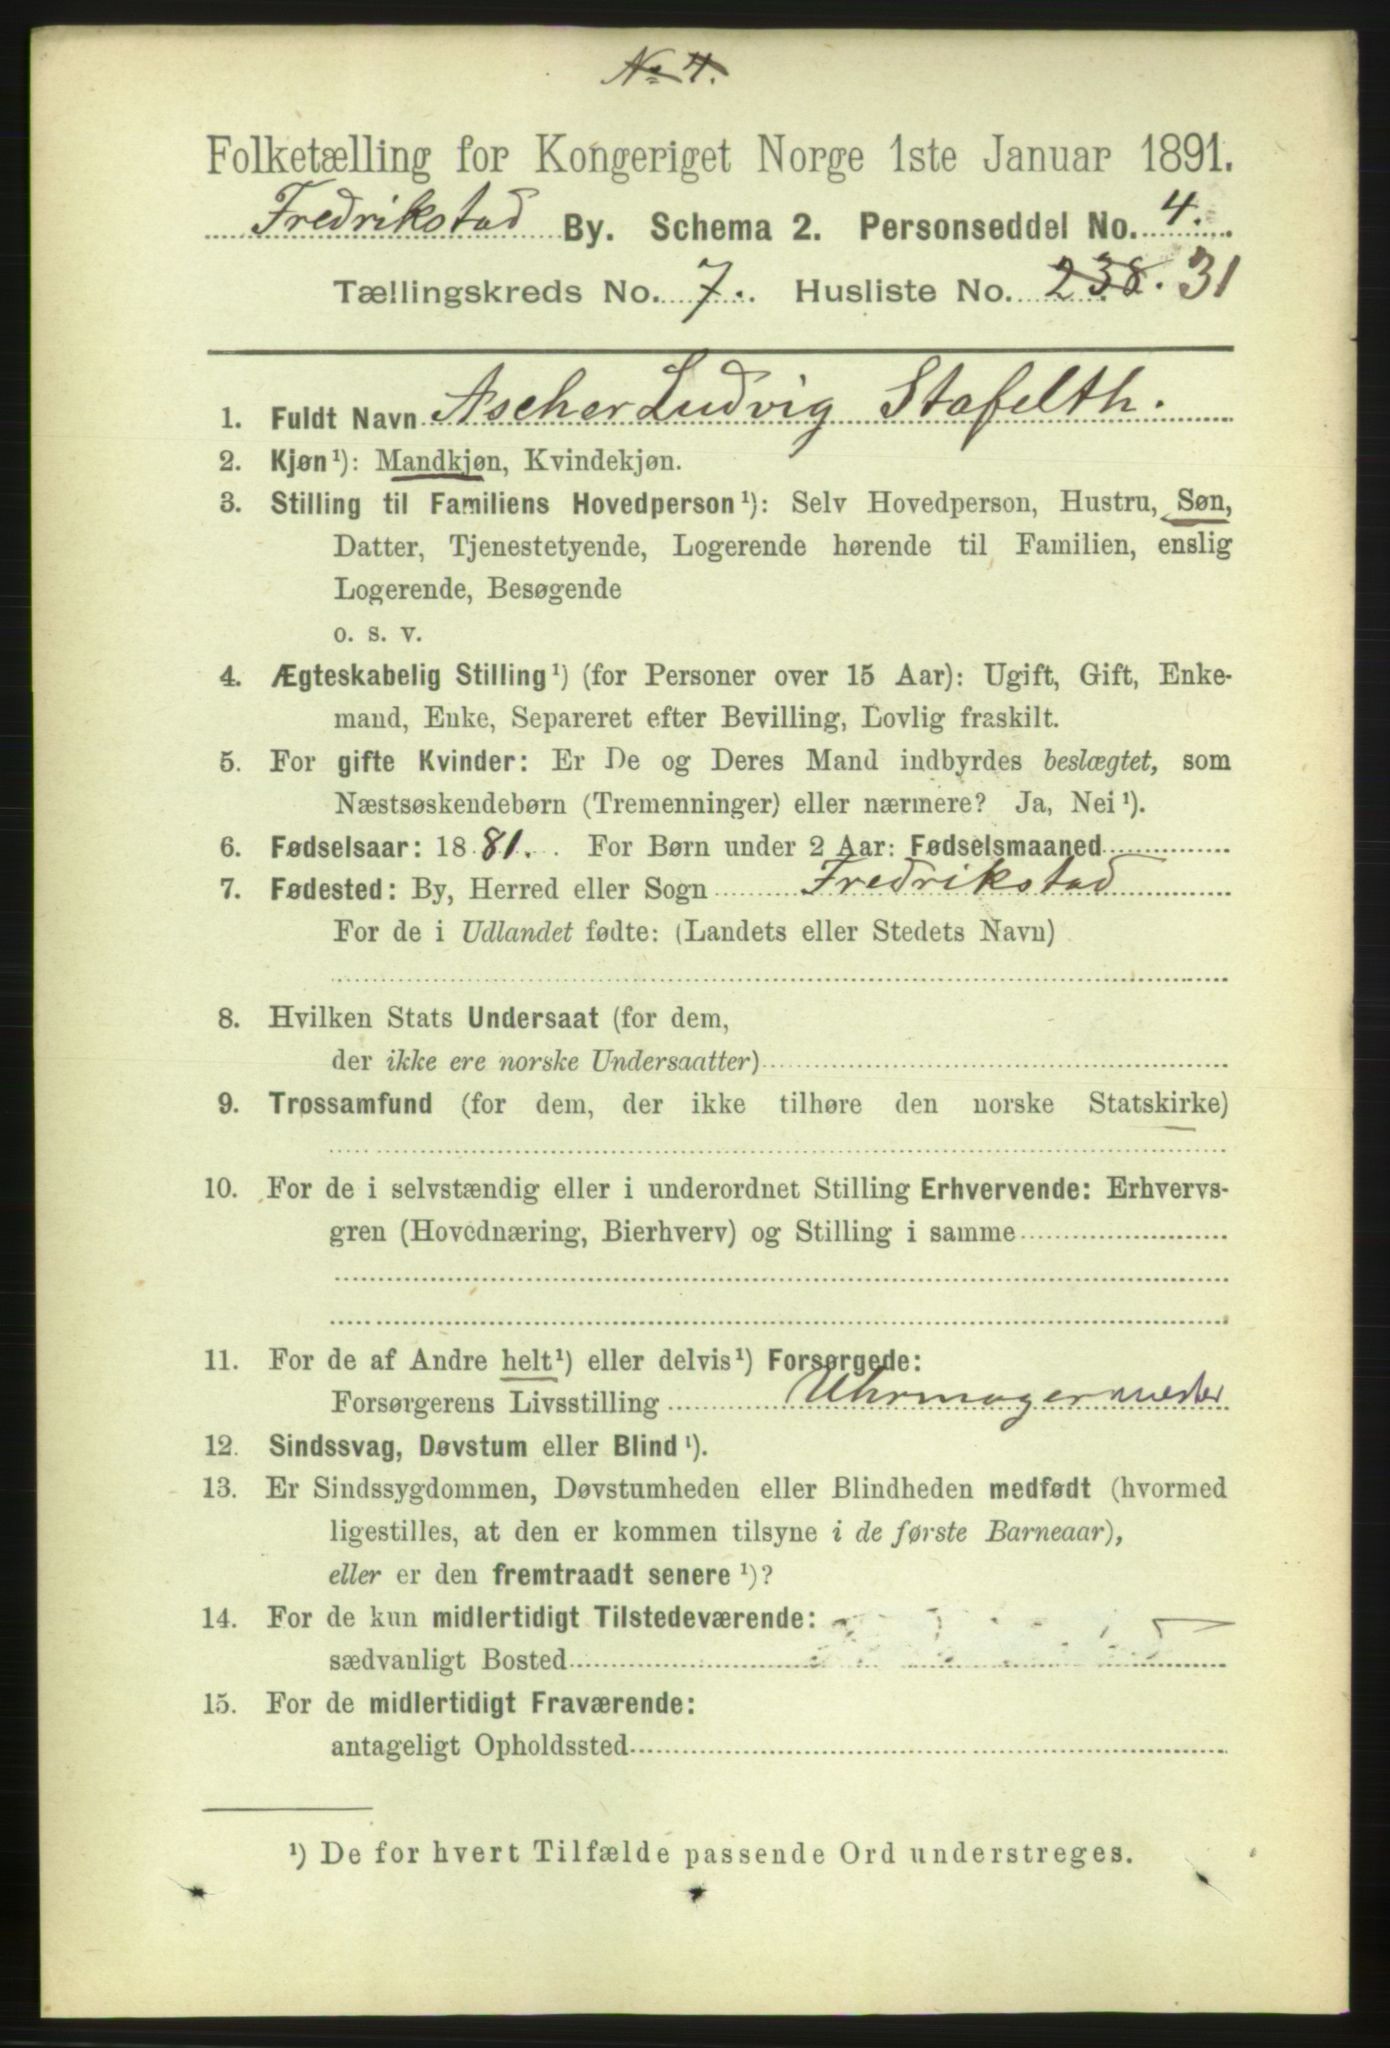 No 4.
Folketælling for Kongeriget Norge 1ste Januar 1891.
Fredrikstad By. Schema 2. Personseddel No. 4.
Tællingskreds No. 7. Husliste No. 238. 31
1. Fuldt Navn Ascher Ludvig Stafelth.
2. Kjøn¹): Mandkjøn, Kvindekjøn.
3. Stilling til Familiens Hovedperson¹): Selv Hovedperson, Hustru, Søn,
Datter, Tjenestetyende, Logerende hørende til Familien, enslig
Logerende, Besøgende
o. s. v.
4. Ægteskabelig Stilling¹) (for Personer over 15 Aar): Ugift, Gift, Enke-
mand, Enke, Separeret efter Bevilling, Lovlig fraskilt.
5. For gifte Kvinder: Er De og Deres Mand indbyrdes beslægtet, som
Næstsøskendebørn (Tremenninger) eller nærmere? Ja, Nei¹).
6. Fødselsaar: 1881. For Børn under 2 Aar: Fødselsmaaned
7. Fødested: By, Herred eller Sogn Fredrikstad
For de i Udlandet fødte: (Landets eller Stedets Navn)
8. Hvilken Stats Undersaat (for dem,
der ikke ere norske Undersaatter)
9. Trossamfund (for dem, der ikke tilhøre den norske Statskirke)
10. For de i selvstændig eller i underordnet Stilling Erhvervende: Erhvervs-
gren (Hovednæring, Bierhverv) og Stilling i samme
11. For de af Andre helt¹) eller delvis¹) Forsørgede:
Forsørgerens Livsstilling Uhrmagermester
12. Sindssvag, Døvstum eller Blind¹).
13. Er Sindssygdommen, Døvstumheden eller Blindheden medfødt (hvormed
ligestilles, at den er kommen tilsyne i de første Barneaar),
eller er den fremtraadt senere¹)?
14. For de kun midlertidigt Tilstedeværende:
sædvanligt Bosted
15. For de midlertidigt Fraværende:
antageligt Opholdssted
¹) De for hvert Tilfælde passende Ord understreges.